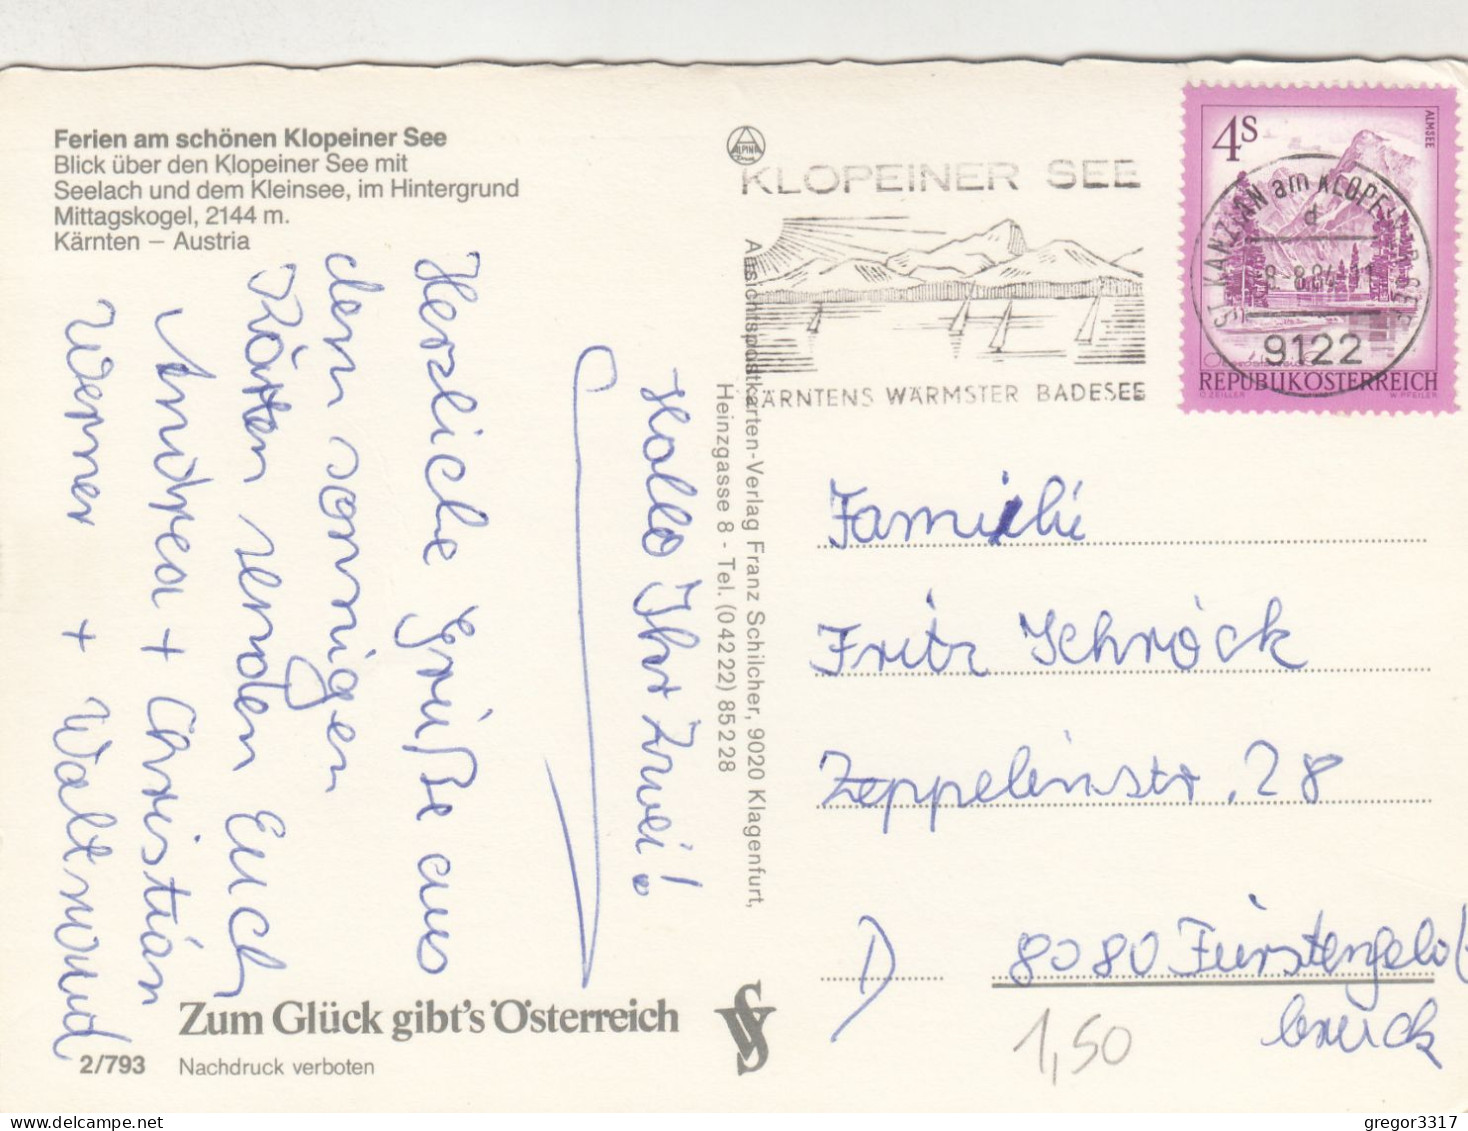 Ferien am schönen Klopeiner See
Blick über den Klopeiner See mit
Seelach und dem Kleinsee, im Hintergrund
Mittagskogel, 2144 m.
Kärnten – Austria
Hallo Ihr Zwei!
Herzliche Grüße aus
dem sonnigen
Kärnten senden Euch
Andrea + Christian
Werner + Waltraud
Zum Glück gibt's Österreich
2/793 Nachdruck verboten
Ansichtspostkarten-Verlag Franz Schilcher, 9020 Klagenfurt,
Heinzgasse 8 - Tel. (0 42 22) 8 52 28
ALPINA
KLOPEINER SEE
KÄRNTENS WÄRMSTER BADESEE
4S
ALMSEE
REPUBLIK ÖSTERREICH
O. ZEILLER W. PFEILER
ST. KANZIAN am KLOPEINER SEE
d
8.-8.84
9122
Familie
Fritz Schröck
Zeppelinstr. 28
D 8080 Fürstenfeld
bruck
1,50
gregor3317